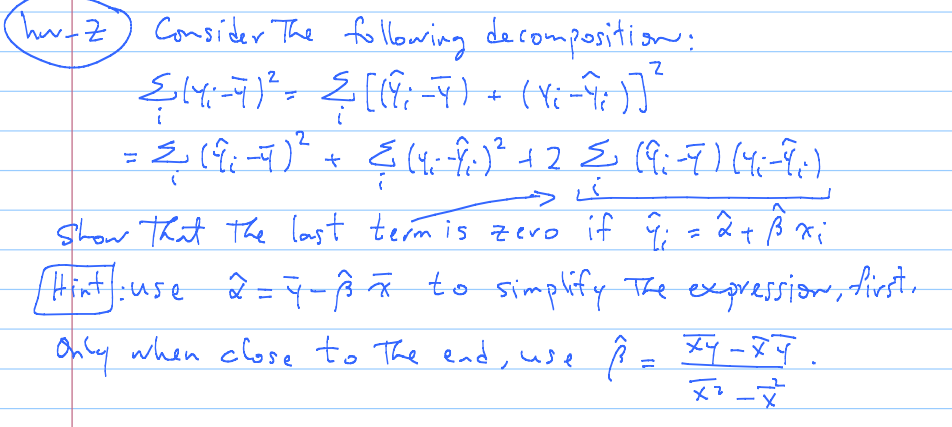 hw-2 Consider The following decomposition:
Σᵢ(yᵢ-ȳ)² = Σᵢ[(ŷᵢ-ȳ) + (yᵢ-ŷᵢ)]²
= Σᵢ(ŷᵢ-ȳ)² + Σᵢ(yᵢ-ŷᵢ)² + 2 Σᵢ(ŷᵢ-ȳ)(yᵢ-ŷᵢ)
Show That the last term is zero if ŷᵢ = α̂ + β̂ xᵢ
Hint: use α̂ = ȳ - β̂ x̄ to simplify The expression, first.
Only when close to The end, use β̂ = (x̄ȳ - x̄ ȳ) / (x̄² - x̄²).